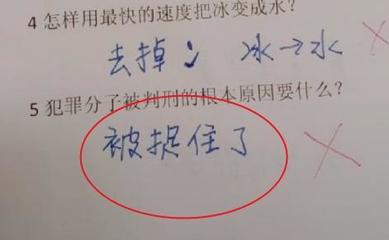 4 怎样用最快的速度把冰变成水?
去掉冫 冰→水
5 犯罪分子被判刑的根本原因要什么?
被捉住了